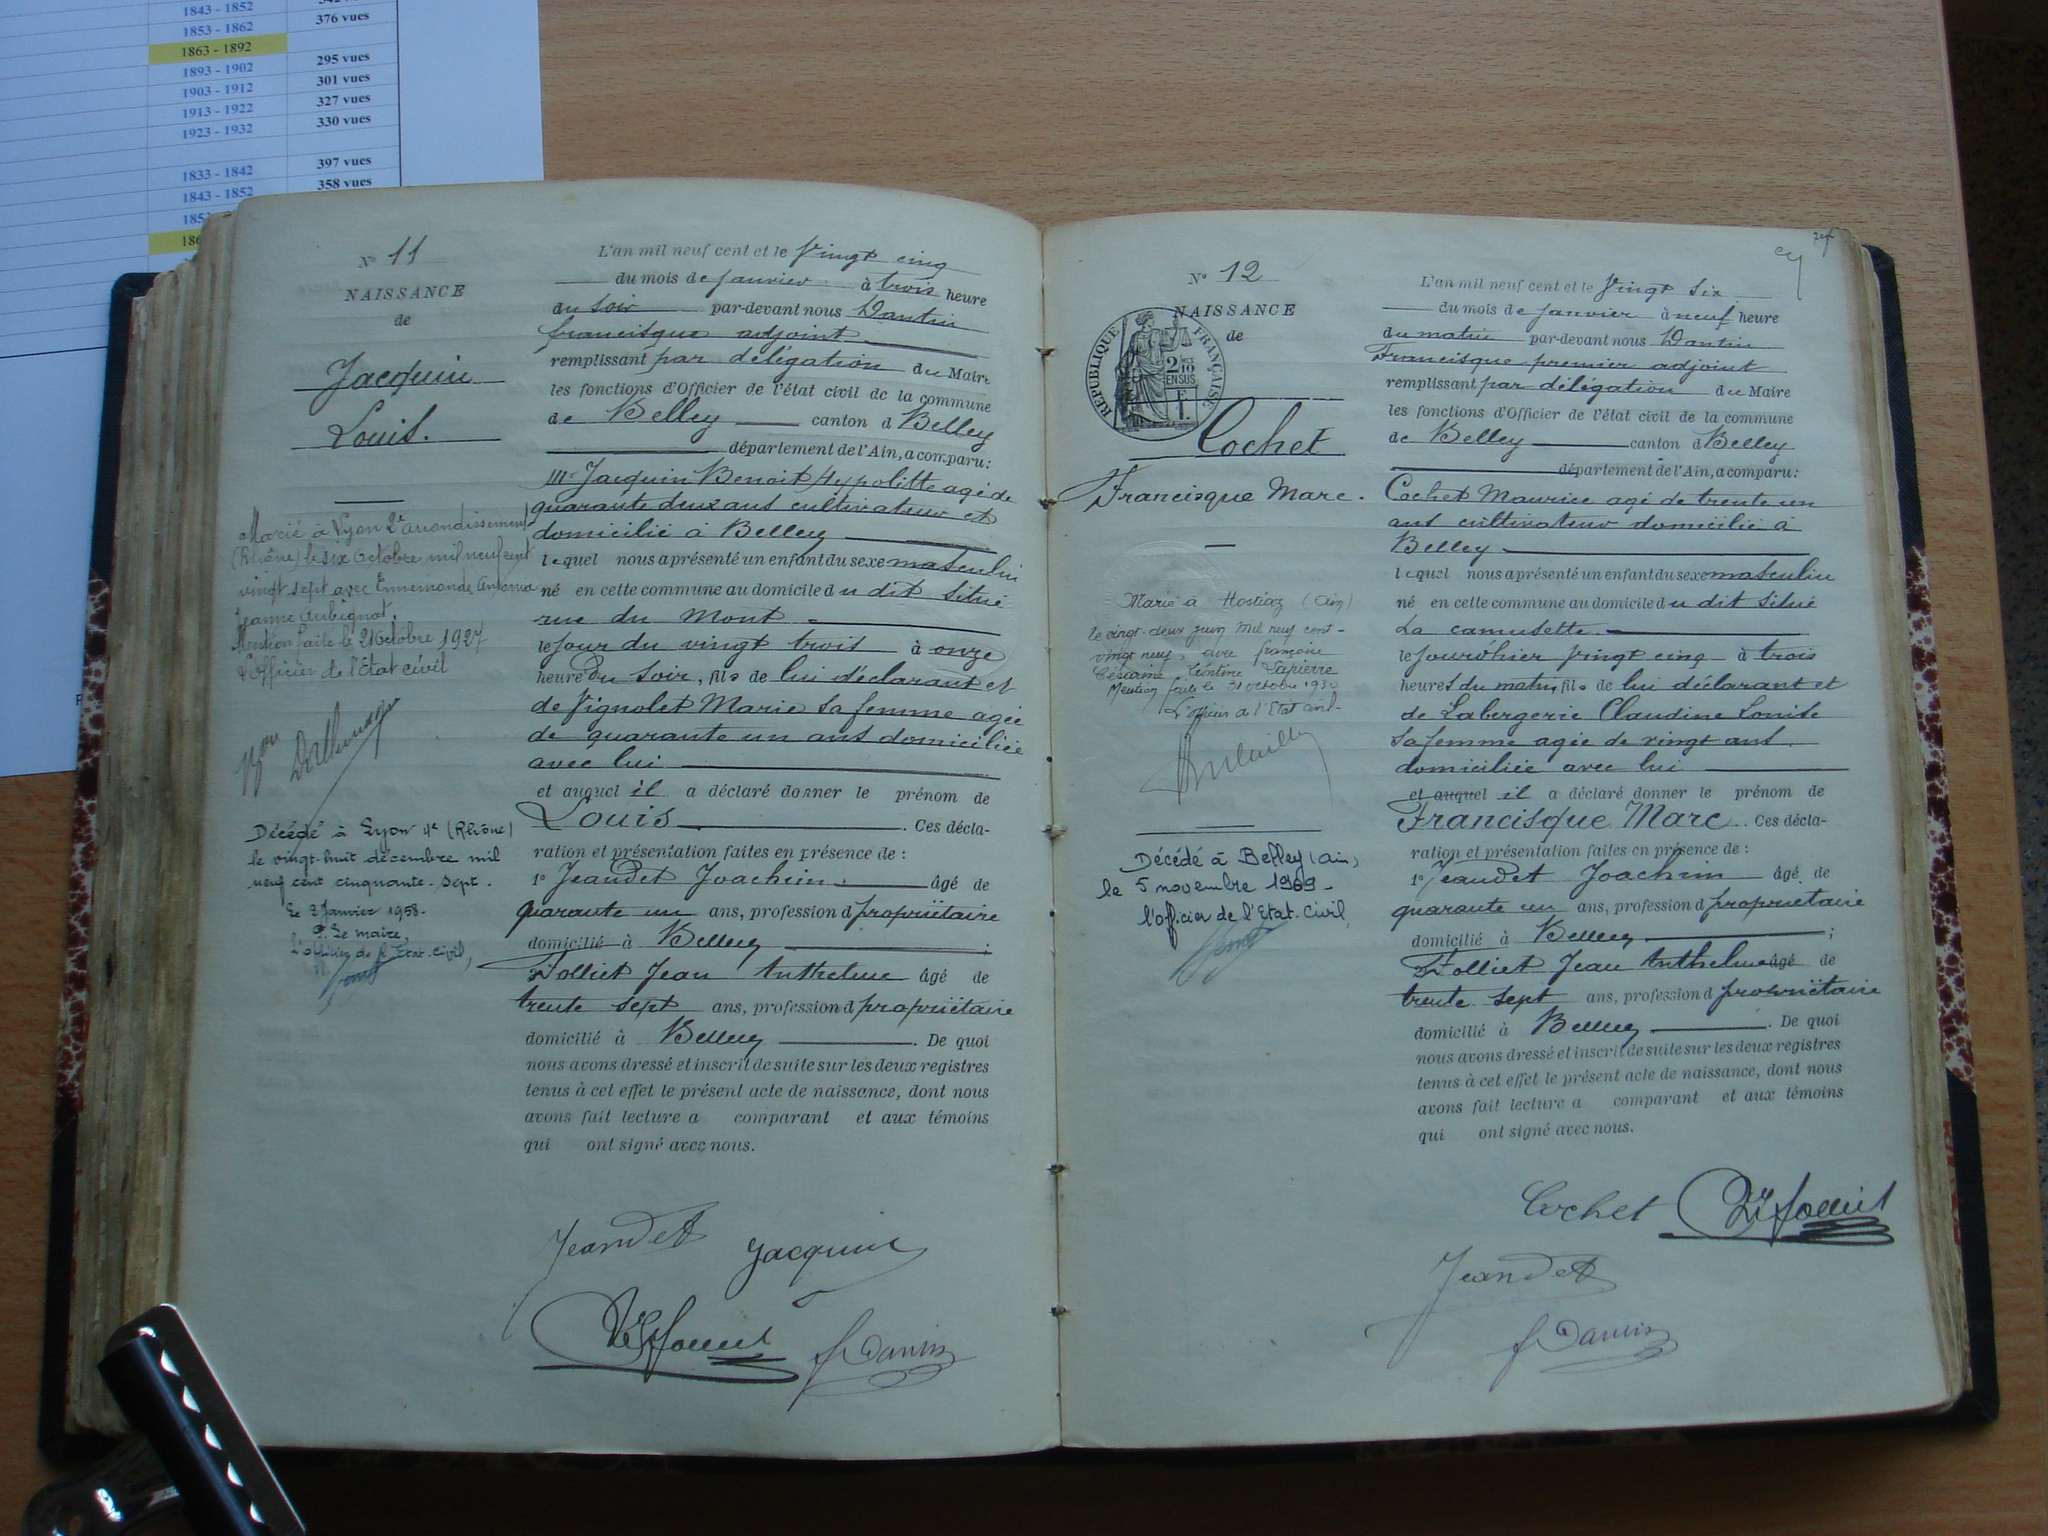 1843 - 1852
1853 - 1862 376 vues
1863 - 1892
1893 - 1902 295 vues
1903 - 1912 301 vues
1913 - 1922 327 vues
1923 - 1932 330 vues
1833 - 1842 397 vues
1843 - 1852 358 vues
N° 11
NAISSANCE
de
Jacquin
Louis.
Marié à Lyon 2e arrondissement
(Rhône) le six Octobre mil neuf cent
vingt sept avec Ennemonde Antonia
Jeanne Aubignat.
Mention faite le 21 Octobre 1927
L'Officier de l'Etat civil
Décédé à Lyon 4e (Rhône)
le vingt-huit décembre mil
neuf cent cinquante-sept.
Le 2 Janvier 1958.
P. Le maire,
l'officier de l'Etat-civil,
L'an mil neuf cent et le Vingt cinq
du mois de Janvier à trois heure
du soir par-devant nous Dantin
francisque adjoint
remplissant par délégation du Maire
les fonctions d'Officier de l'état civil de la commune
de Belley canton d Belley
département de l'Ain, a comparu:
Mr Jacquin Benoit Hypolitte agé de
quarante deux ans cultivateur et
domicilié à Belley
lequel nous a présenté un enfant du sexe masculin
né en cette commune au domicile du dit situé
rue du Mont
le jour du vingt trois à onze
heure du soir, fils de lui déclarant et
de Vignolet Marie sa femme agée
de quarante un ans domiciliée
avec lui
et auquel il a déclaré donner le prénom de
Louis. Ces décla-
ration et présentation faites en présence de :
1° Jeandet Joachim âgé de
quarante un ans, profession d propriétaire
domicilié à Belley ;
2° Folliet Jean Anthelme âgé de
trente sept ans, profession d propriétaire
domicilié à Belley. De quoi
nous avons dressé et inscrit de suite sur les deux registres
tenus à cet effet le présent acte de naissance, dont nous
avons fait lecture a comparant et aux témoins
qui ont signé avec nous.
Jeandet Jacquin
F Dantin
N° 12
NAISSANCE
de
RÉPUBLIQUE FRANÇAISE
2/10 EN SUS
Cochet
Francisque Marc.
Marié à Hostiaz (Ain)
le vingt-deux juin mil neuf cent-
vingt neuf, avec françoise
Césarine Léontine Lapierre
Mention faite le 31 octobre 1930
L'officier de l'Etat civil-
Décédé à Belley (ain)
le 5 novembre 1969-
l'officier de l'Etat-Civil,
L'an mil neuf cent et le Vingt six
du mois de Janvier à neuf heure
du matin par-devant nous Dantin
Francisque premier adjoint
remplissant par délégation du Maire
les fonctions d'Officier de l'état civil de la commune
de Belley canton d Belley
département de l'Ain, a comparu:
Cochet Maurice agé de trente un
ans cultivateur domicilié à
Belley
lequel nous a présenté un enfant du sexe masculin
né en cette commune au domicile du dit situé
La camusette
le jour d'hier vingt cinq à trois
heures du matin fils de lui déclarant et
de Labergerie Claudine Louise
sa femme agée de vingt ans
domiciliée avec lui
et auquel il a déclaré donner le prénom de
Francisque Marc. Ces décla-
ration et présentation faites en présence de :
1° Jeandet Joachim âgé de
quarante un ans, profession d propriétaire
domicilié à Belley ;
2° Folliet Jean Anthelme âgé de
trente sept ans, profession d propriétaire
domicilié à Belley. De quoi
nous avons dressé et inscrit de suite sur les deux registres
tenus à cet effet le présent acte de naissance, dont nous
avons fait lecture a comparant et aux témoins
qui ont signé avec nous.
Cochet
Jeandet
F Dantin